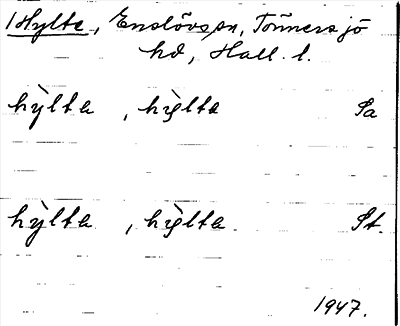 1 Hylte, Enslövs sn, Tönnersjö
hd, Hall. l.
hỳlta , hỳlta Sa
hỳlta , hỳlta St.
1947.